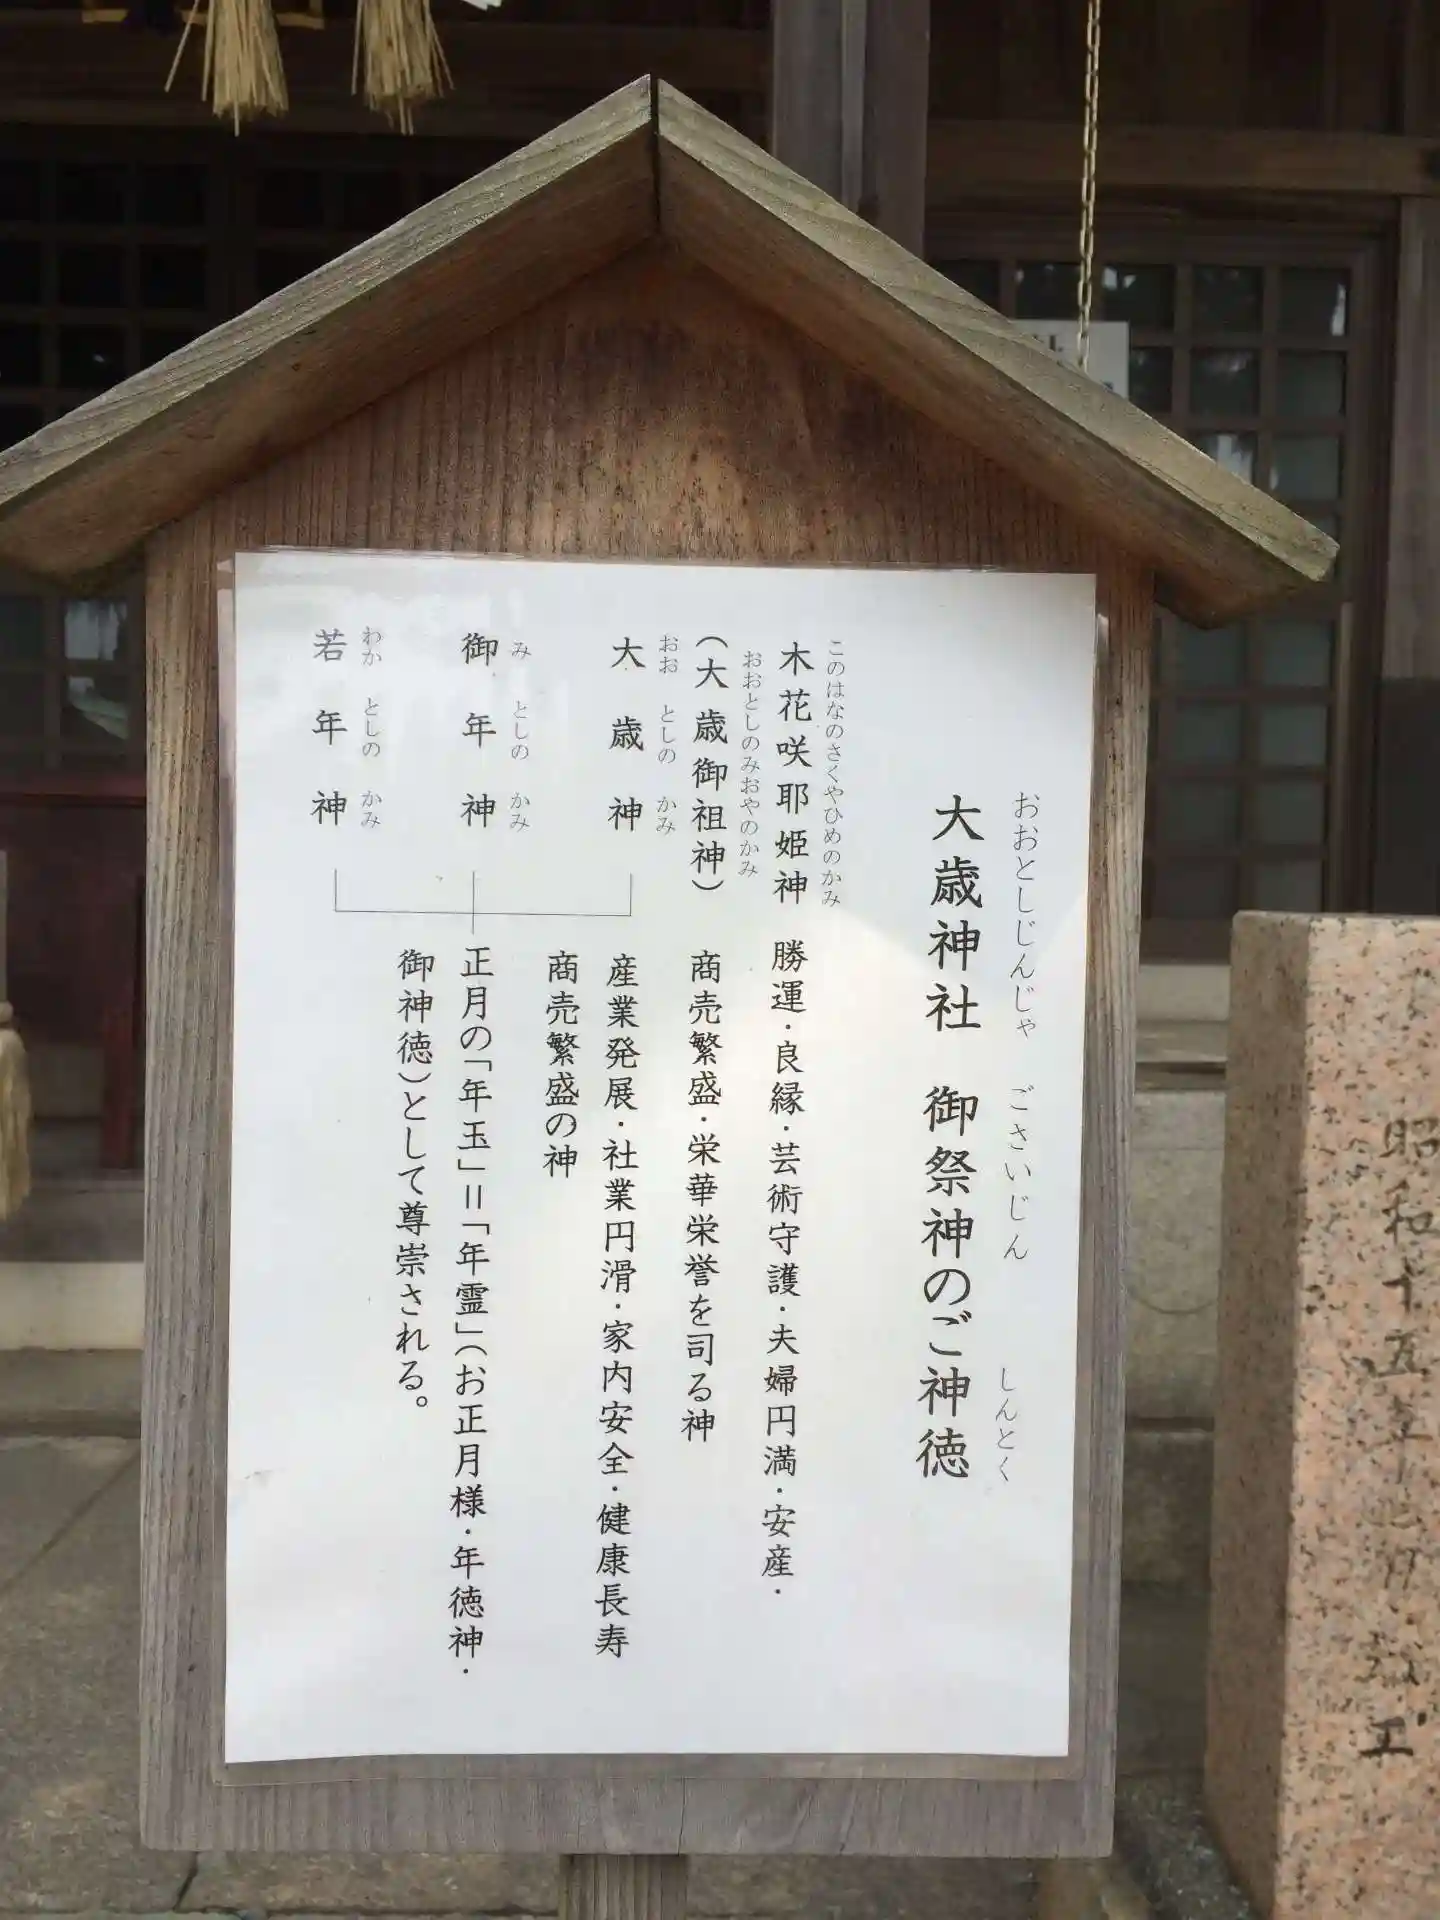 おおとしじんじゃ ごさいじん しんとく
大歳神社 御祭神のご神徳
このはなのさくやひめのかみ
木花咲耶姫神 勝運・良縁・芸術守護・夫婦円満・安産・
おおとしのみおやのかみ
(大歳御祖神) 商売繁盛・栄華栄誉を司る神
おお としの かみ
大歳神 産業発展・社業円滑・家内安全・健康長寿
商売繁盛の神
み としの かみ
御年神 正月の「年玉」=「年霊」(お正月様・年徳神・
御神徳)として尊崇される。
わか としの かみ
若年神
昭和十五年七月竣工